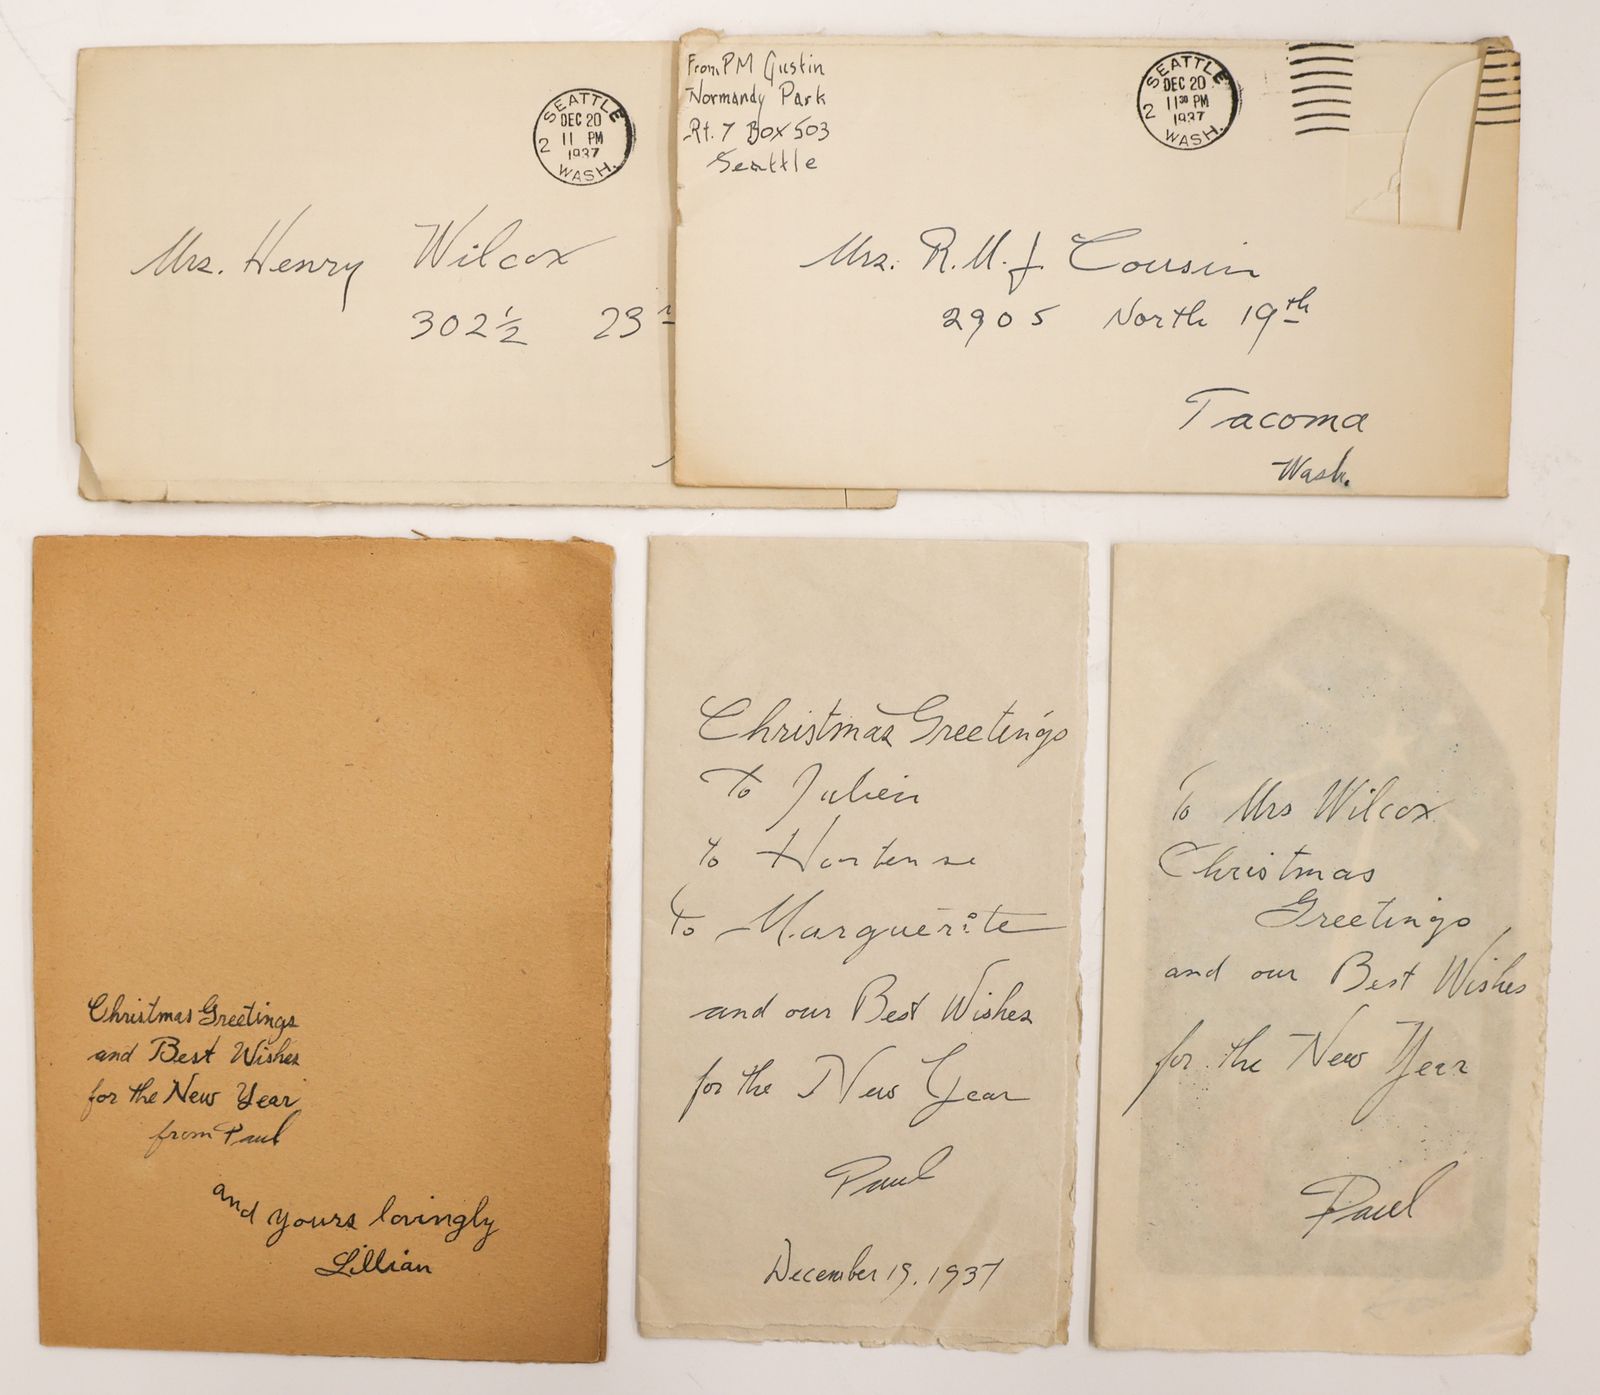 SEATTLE
DEC 20
2 11 PM
1937
WASH.
Mrs. Henry Wilcox
302½ 23
From PM Gustin
Normandy Park
Rt. 7 Box 503
Seattle
SEATTLE
DEC 20
2 11 30 PM
1937
WASH.
Mrs. R.M.J. Cousin
2905 North 19th
Tacoma
Wash.
Christmas Greetings
and Best Wishes
for the New Year
from Paul
and yours lovingly
Lillian
Christmas Greetings
To Julien
to Hortense
To Marguerite
and our Best Wishes
for the New Year
Paul
December 19, 1937
To Mrs Wilcox
Christmas
Greetings
and our Best Wishes
for the New Year
Paul